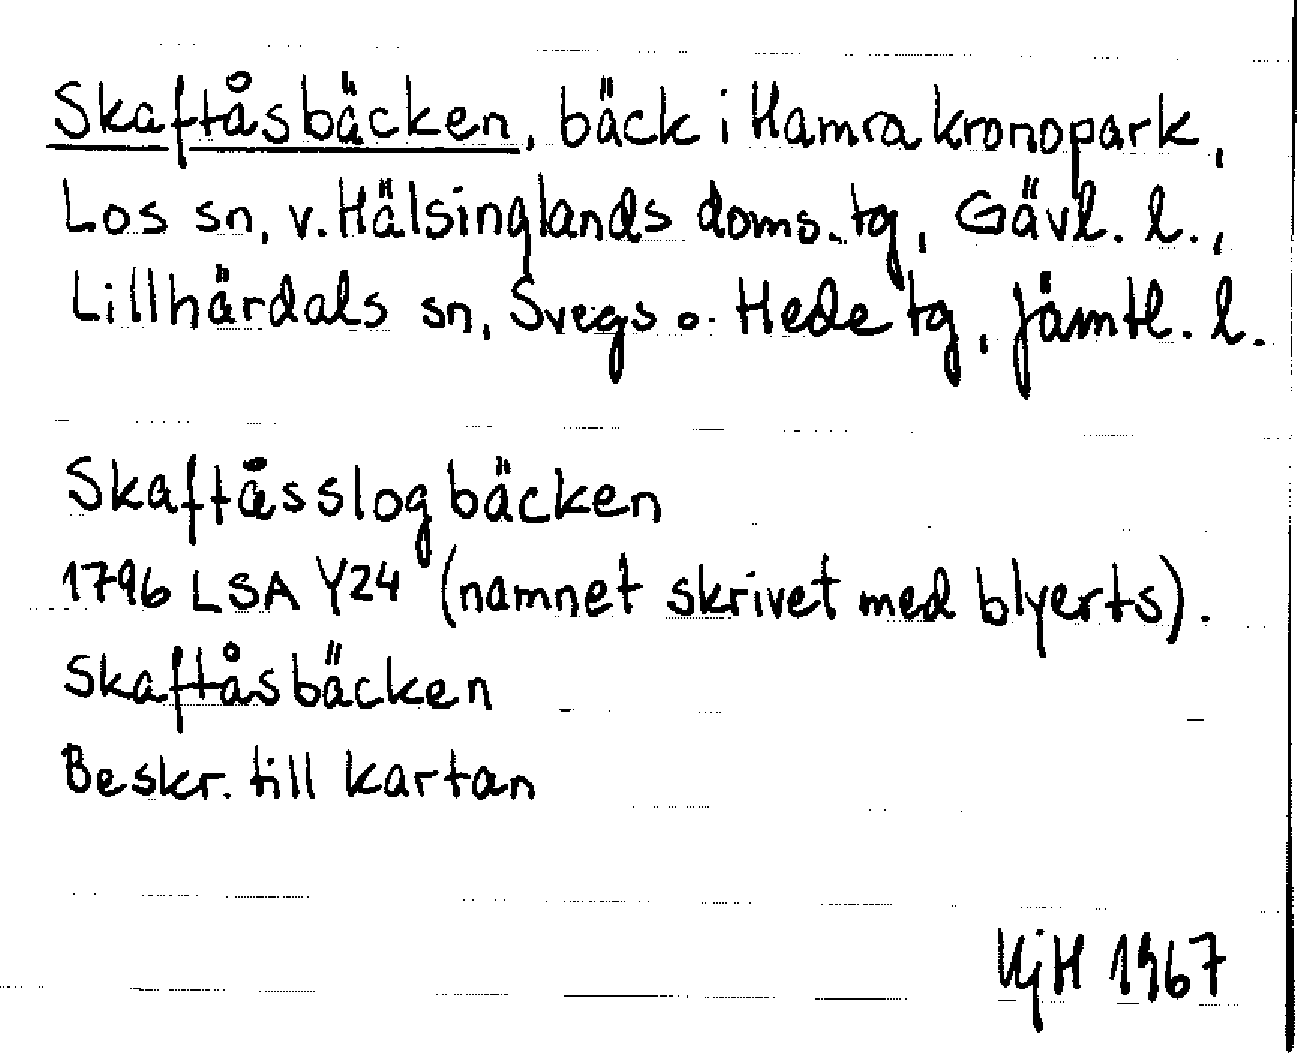 Skaftåsbäcken, bäck i Hamra kronopark,
Los sn, v. Hälsinglands doms. tg, Gävl. l.,
Lillhärdals sn, Svegs o. Hede tg, Jämtl. l.
Skaftåsslogbäcken
1796 LSA Y24 (namnet skrivet med blyerts).
Skaftåsbäcken
Beskr. till kartan
1967